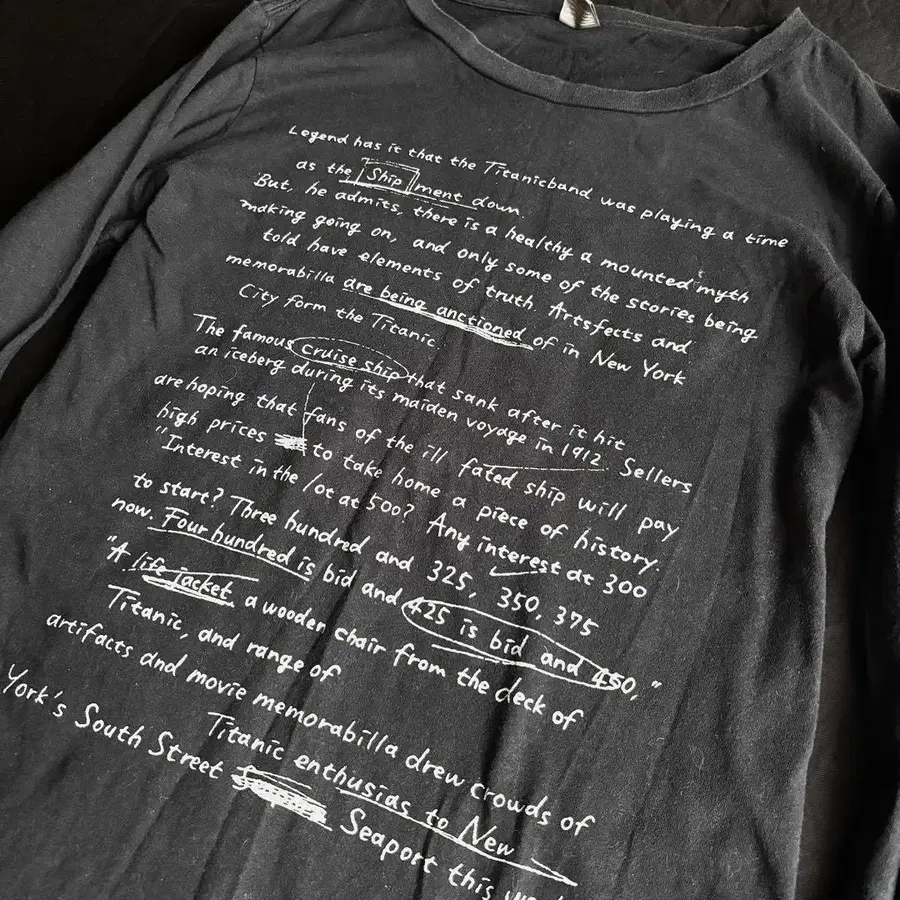 Legend has it that the Titanicband was playing a time
as the Ship ment down.
But, he admits, there is a healthy a mounted myth
making going on, and only some of the stories being
told have elements of truth. Artsfects and
memorabilla are being anctioned of in New York
City form the Titanic.
The famous cruise ship that sank after it hit
an iceberg during its maiden voyage in 1912. Sellers
are hoping that fans of the ill fated ship will pay
high prices to take home a piece of history.
"Interest in the lot at 500? Any interest at 300
to start? Three hundred and 325, 350, 375
now. Four hundred is bid and 425 is bid and 450,"
"A life jacket a wooden chair from the deck of
Titanic, and range of
artifacts and movie memorabilla drew crowds of
Titanic enthusias to New
York's South Street Seaport this